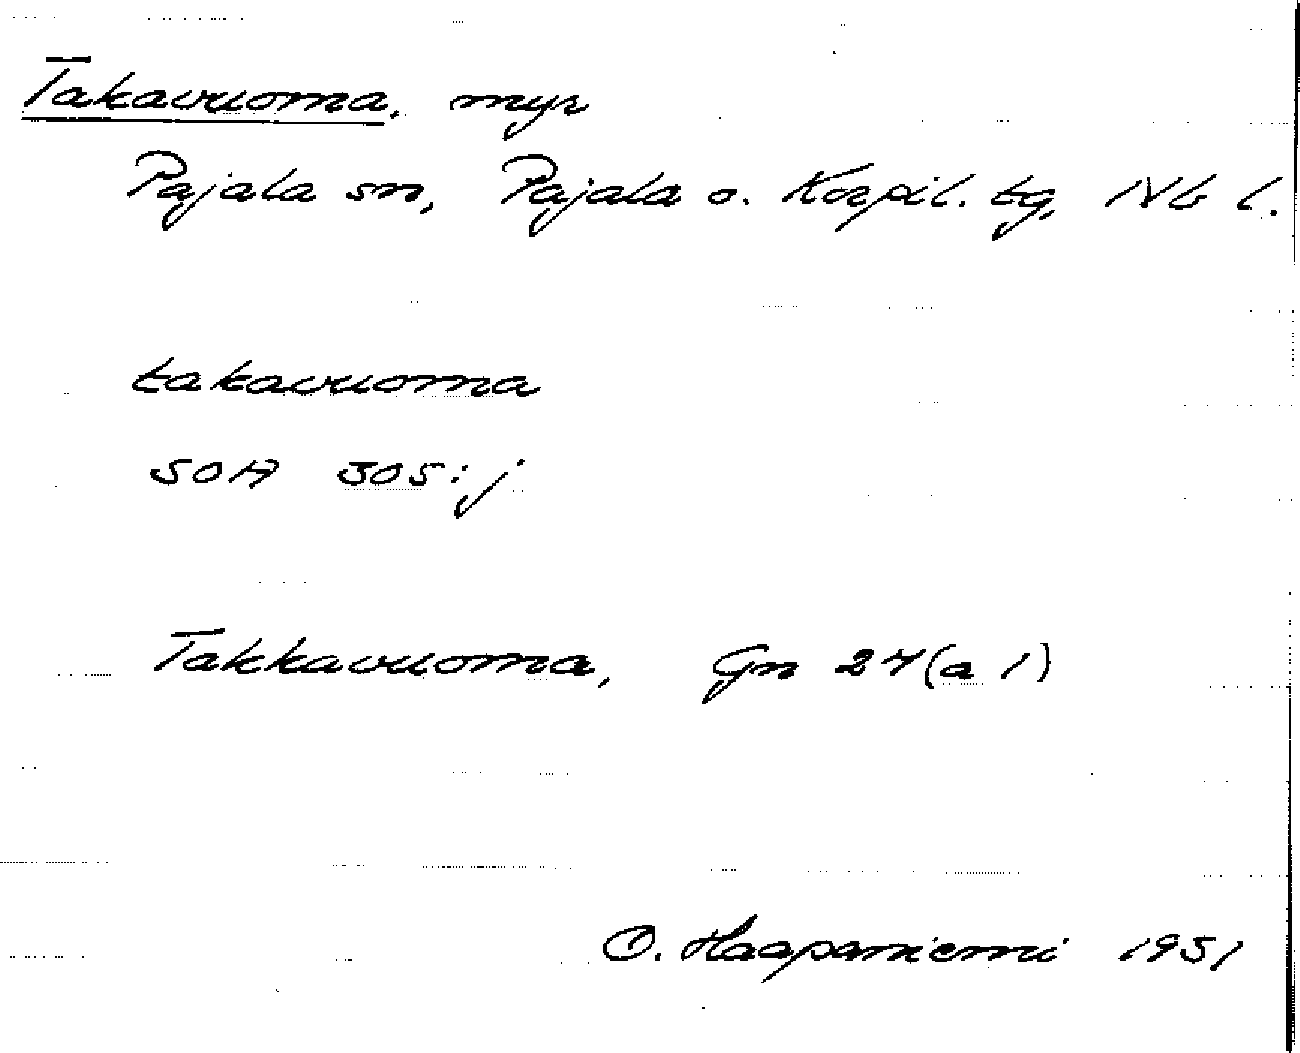 Takavuoma, myr
Pajala sn, Pajala o. Korpil. tg, Nb l.
takavuoma
SOA 305:j
Takkavuoma, Gn 24(a 1)
O. Haapaniemi 1951